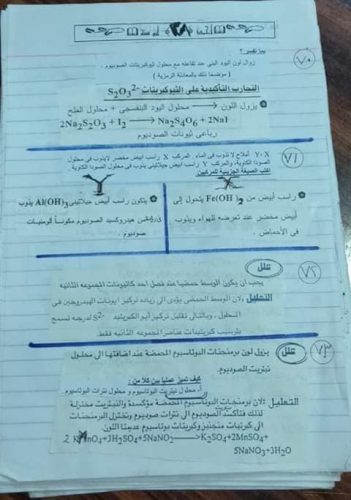 بما تفسر ؟
٧٠
زوال لون اليود البني عند تفاعله مع محلول ثيوكبريتات الصوديوم .
( موضحا ذلك بالمعادلة الرمزية )
التجارب التأكيدية على الثيوكبريتات S₂O₃²⁻
يزول اللون ⟵ محلول اليود البنفسجي + محلول الملح
2Na₂S₂O₃ + I₂ ⟶ Na₂S₄O₆ + 2NaI
رباعي ثيونات الصوديوم
٧١
X ، Y أملاح لا تذوب في الماء المركب X راسب أبيض مخضر لا يذوب في محلول
الصودا الكاوية، والمركب Y راسب أبيض جيلاتيني يذوب في محلول الصودا الكاوية
اكتب الصيغة الجزيئية للمركبين
X Y
راسب أبيض من Fe(OH)₂ يتحول إلى
أبيض مخضر عند تعرضه للهواء ويذوب
في الأحماض .
يتكون راسب أبيض جيلاتيني Al(OH)₃ يذوب
في هيدروكسيد الصوديوم مكونا ألومينات
صوديوم .
علل
٧٢
يجب أن يكون الوسط حمضيا عند فصل أحد كاتيونات المجموعة الثانية
التعليل لأن الوسط الحمضي يؤدى الى زيادة تركيز أيونات الهيدروجين في
المحلول ، وبالتالي تقليل تركيز أنيو الكبريتيد S²⁻ لدرجة تسمح
بترسيب كبريتيدات عناصر المجموعة الثانية فقط
علل
٧٣
يزول لون برمنجنات البوتاسيوم المحمضة عند اضافتها الى محلول
نيتريت الصوديوم.
كيف تميز عمليا بين كلا من :
١- محلول نيتريت البوتاسيوم و محلول نترات البوتاسيوم
التعليل لأن برمنجنات البوتاسيوم المحمضة مؤكسدة والنيتريت مختزلة
لذلك فتأكسد الصوديوم الى نترات صوديوم وتختزل البرمنجنات
الى كبريتات منجنيز وكبريتات بوتاسيوم عديمتا اللون.
2 KMnO₄+3H₂SO₄+5NaNO₂⟶K₂SO₄+2MnSO₄+
5NaNO₃+3H₂O